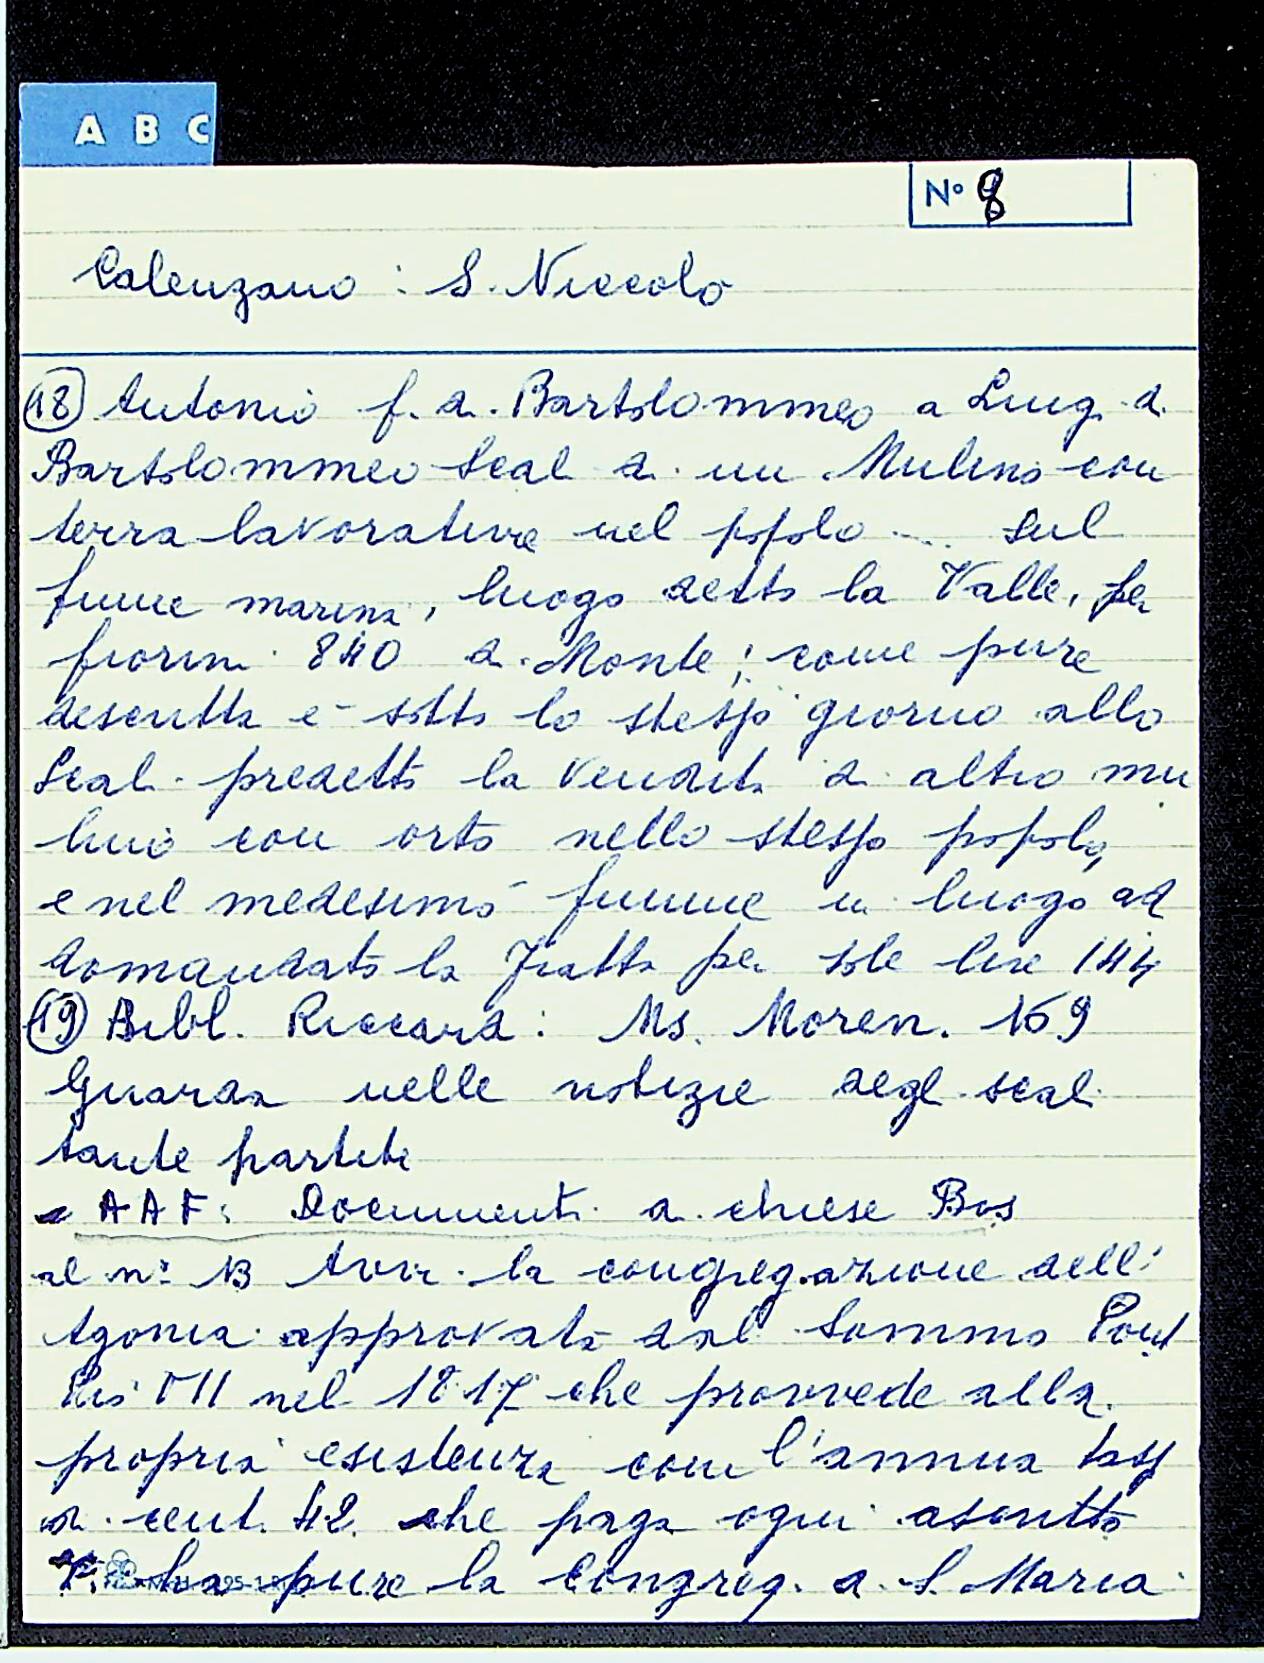 A B C
Nº 8
Calenzano : S. Niccolo
18 Antonio f. d. Bartolommeo a Luig. d.
Bartolommeo Scal d. un Mulino con
terra lavorativa nel popolo ... sul
fiume marina, luogo detto la Valle, per
fiorini 840 d. Monte; come pure
descritta e sotto lo stesso giorno allo
Scal. predetto la vendita d. altro mu
lino con orto nello stesso popolo,
e nel medesimo fiume in luogo ad
domandato la Fratta per sole lire 144
19 Bibl. Riccard: Ms. Moren. 169
Guarda nelle notizie degl. scal.
tante partite
AAF: Document. d. chiese Bos
al nº 13 Avvi. la congregazione dell'
Agonia approvata dal Sommo Pont
Pio VII nel 1817 che provvede alla
propria esistenza con l'annua tass
d. cent. 42. che paga ogni ascritto
pure la Congreg. d. S. Maria